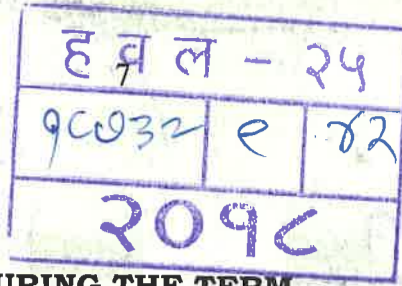 हवल - २५
7
१८७३२ ९ ४२
२०१८
URING THE TERM